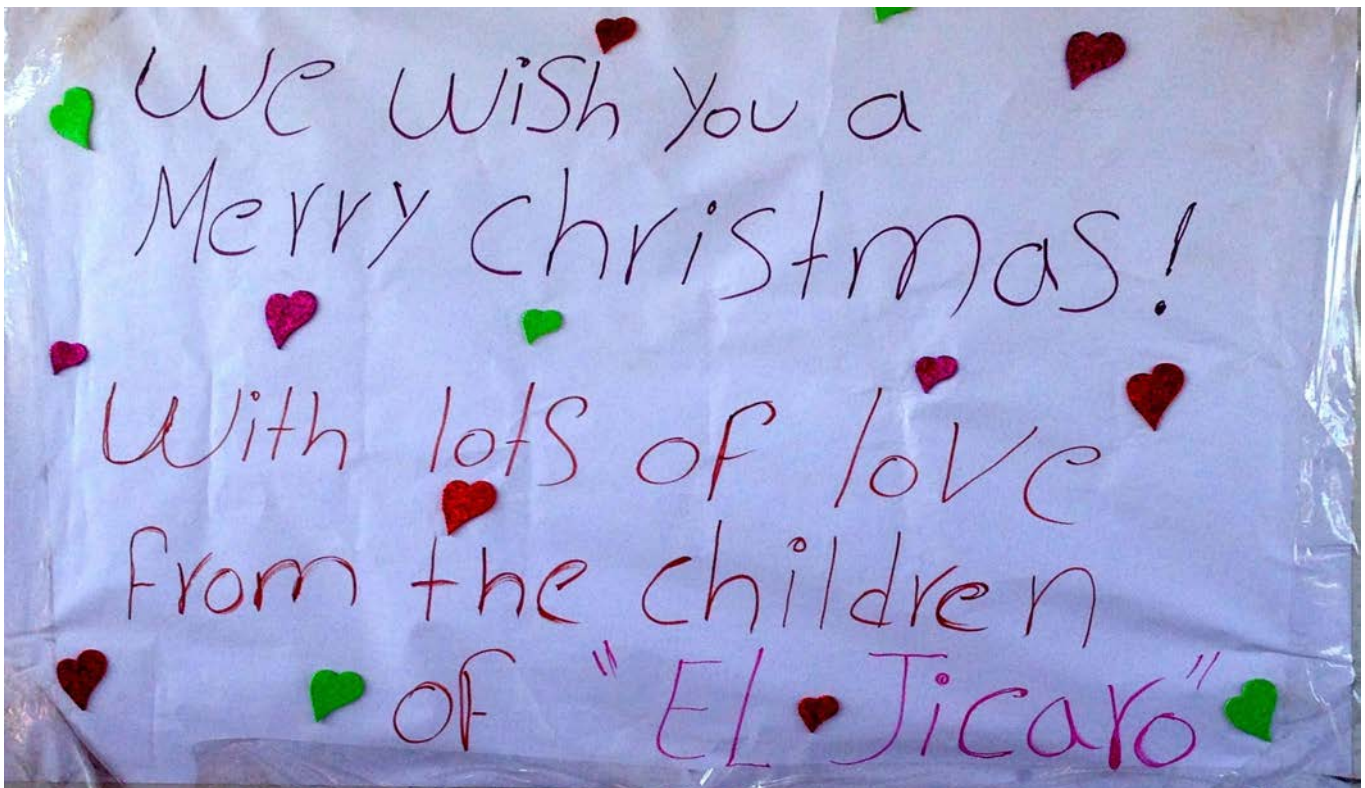 We wish you a
Merry christmas!
With lots of love
from the children
of "EL Jicaro"